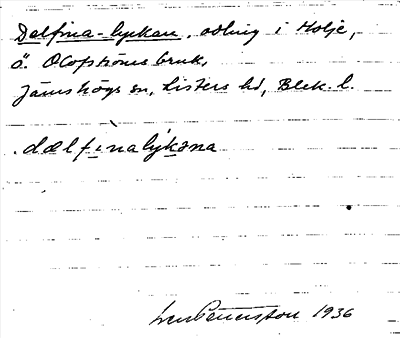 Delfina-lyckan, odling i Holje,
ö. Olofströms bruk,
Jämshögs sn, Listers hd, Blek. l.
.dælfìnalýkəna
1936